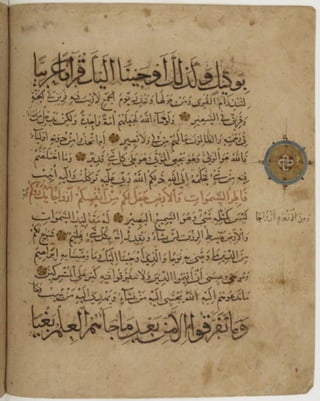 بوكيل وكذلك أوحينا إليك قرآنا عربيا
لتنذر أم القرى ومن حولها وتنذر يوم الجمع لا ريب فيه فريق في الجنة
وفريق في السعير ولو شاء الله لجعلهم أمة واحدة ولكن يدخل من يشاء
في رحمته والظالمون ما لهم من ولي ولا نصير أم اتخذوا من دونه أولياء
فالله هو الولي وهو يحيي الموتى وهو على كل شيء قدير وما اختلفتم
فيه من شيء فحكمه إلى الله ذلكم الله ربي عليه توكلت وإليه أنيب
فاطر السموات والأرض جعل لكم من أنفسكم أزواجا يذرؤكم فيه
ومن الأنعام أزواجا
ليس كمثله شيء وهو السميع البصير له مقاليد السموات
والأرض يبسط الرزق لمن يشاء ويقدر إنه بكل شيء عليم شرع لكم
من الدين ما وصى به نوحا والذي أوحينا إليك وما وصينا به إبراهيم
وموسى وعيسى أن أقيموا الدين ولا تتفرقوا فيه كبر على المشركين
ما تدعوهم إليه الله يجتبي إليه من يشاء ويهدي إليه من ينيب
وما تفرقوا إلا من بعد ما جاءهم العلم بغيا